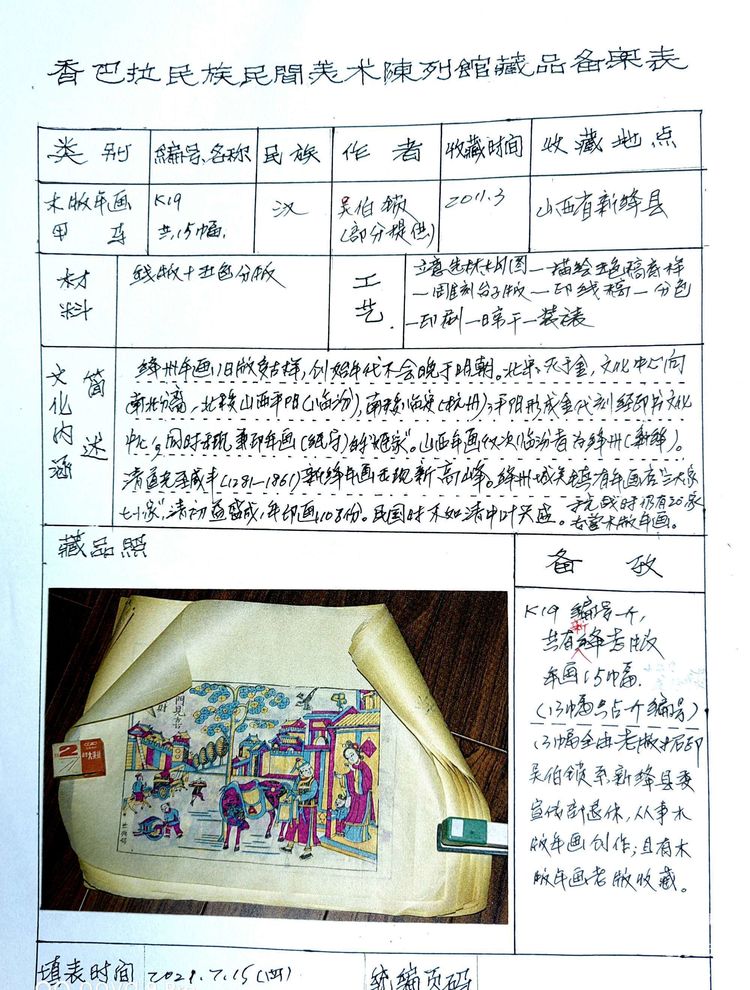 香巴拉民族民間美术陳列館藏品备案表
类别 编号、名称 民族 作者 收藏时间 收藏地点
木版年画 K19 汉 吴伯锁 2011.3 山西省新绛县
甲 共15幅 (部分提供)
材料 线版+五色分版
工艺
一印刷一晾干一装裱
文化内涵简述
绛州年画旧版古样,创始年代不会晚于明朝。北宋灭于金,文化中心向
南北分离,北移山西平阳(临汾),南移临安(杭州),平阳形成金代刻经印书文化
中心,同时出现兼印年画(纸守)的"姬家"。山西年画仅次临汾者为绛州(新绛)。
清道光至咸丰(1281-1861)新绛年画出现新高峰。绛州城关镇有年画店"三大家
七小家",清初益盛,年印画108份。民国时不如清中叶兴盛
抗战时仍有20家
去营木版年画。
藏品照
备孜
K19 编号一个,
共有新绛老版
年画15幅.
(13幅只占一个编号)
13幅全由老版拓印
吴伯锁系新绛县委
宣传部退休,从事木
版年画创作;且有木
版年画老版收藏。
2
填表时间 2021.7.15(四) 统编页码